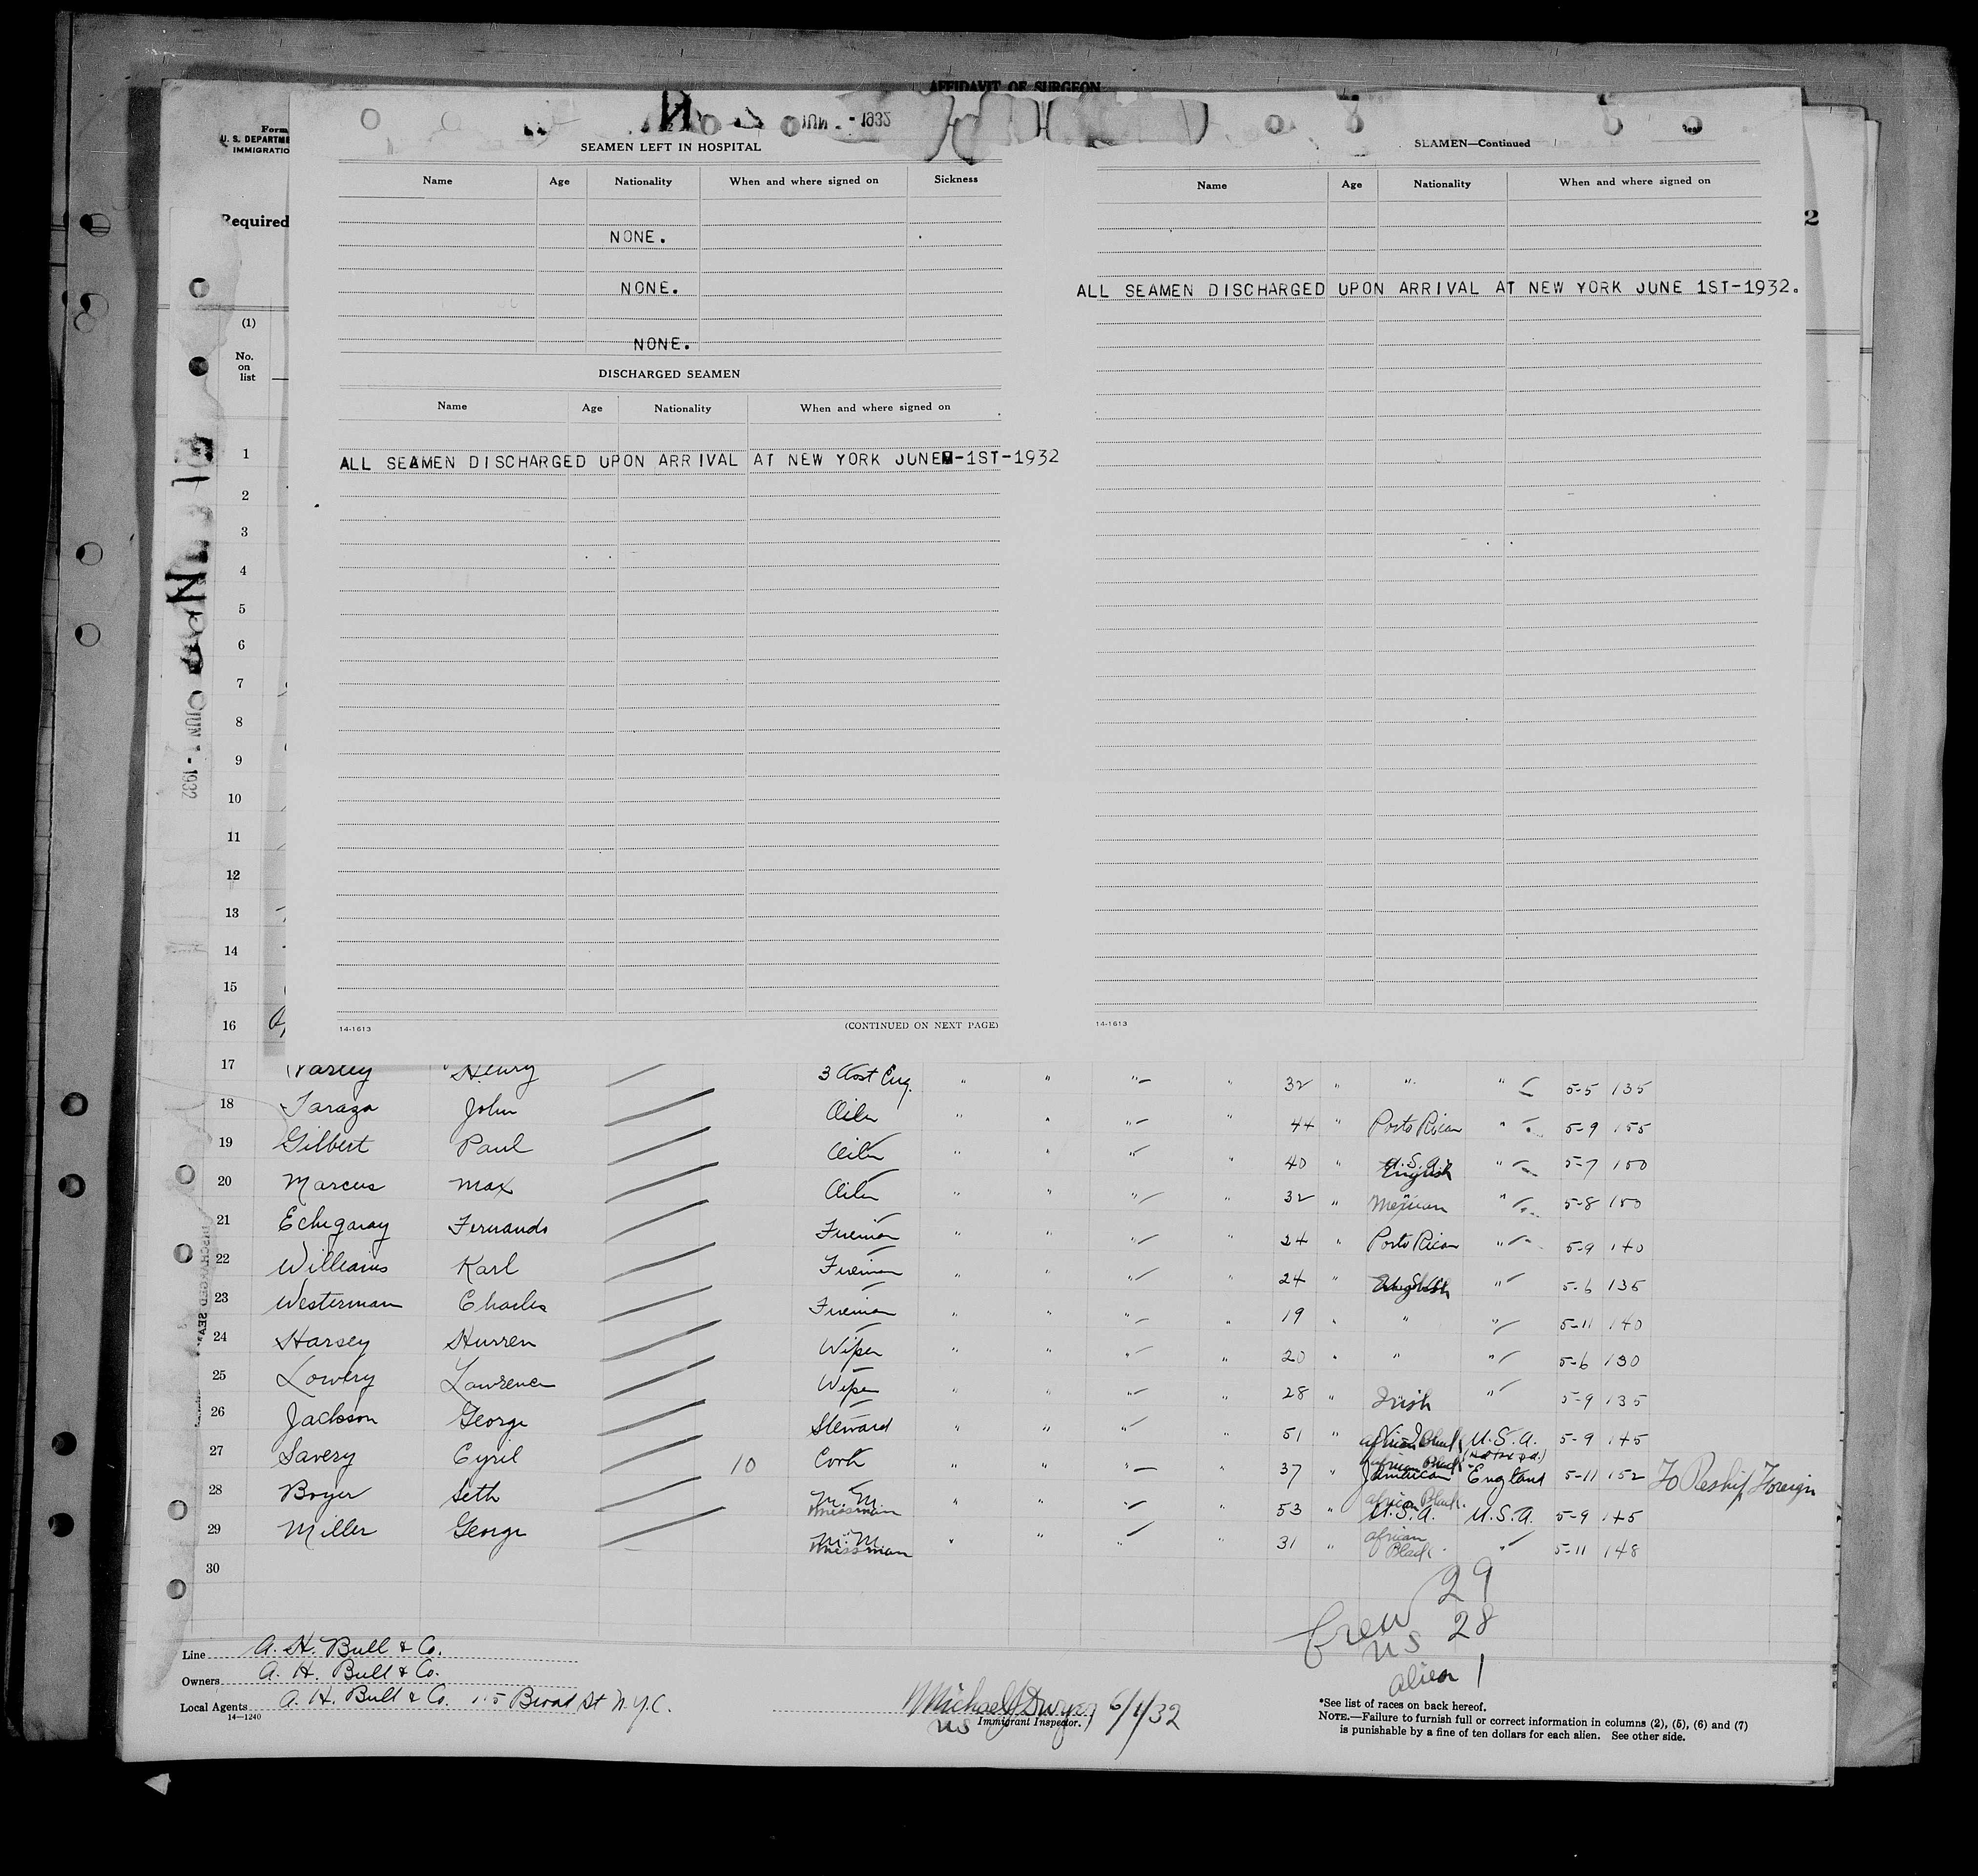 AFFIDAVIT OF SURGEON
Form
U. S. DEPARTME
IMMIGRATIO
Required
2
JUN - 1932
SEAMEN LEFT IN HOSPITAL
Name Age Nationality When and where signed on Sickness
NONE.
NONE.
NONE.
DISCHARGED SEAMEN
Name Age Nationality When and where signed on
ALL SEAMEN DISCHARGED UPON ARRIVAL AT NEW YORK JUNE -1ST-1932
14-1613 (CONTINUED ON NEXT PAGE)
SEAMEN—Continued
Name Age Nationality When and where signed on
ALL SEAMEN DISCHARGED UPON ARRIVAL AT NEW YORK JUNE 1ST-1932.
14-1613
(1)
No.
on
list
1
2
3
4
5
6
7
8
9
10
11
12
13
14
15
16
JUN 1 - 1932
17 Henry 3 Asst Eng. " " " " 32 " " " 5-5 135
18 Taraza John Oiler " " " " 44 " Porto Rican " 5-9 155
19 Gilbert Paul Oiler " " " " 40 " U.S.A. English " 5-7 150
20 Marcus Max Oiler " " " " 32 " Mexican " 5-8 150
21 Echegaray Fernando Fireman " " " 24 " Porto Rican " 5-9 140
22 Williams Karl Fireman " " " " 24 " " 5-6 135
23 Westerman Charles Fireman " " " " 19 " " " 5-11 140
24 Harsey Hurren Wiper " " " " 20 " " " 5-6 130
25 Lowery Lawrence Wiper " " " " 28 " Irish " 5-9 135
26 Jackson George Steward " " " " 51 " African Black U.S.A. 5-9 145
27 Savery Cyril 10 Cook " " " " 37 " African Black Jamaican England 5-11 152 To Reship Foreign
28 Boyer Seth M.M. Messman " " " " 53 " African Black. U.S.A. U.S.A. 5-9 145
29 Miller George M.M. Messman " " " " 31 " African Black. " 5-11 148
30
29
Crew 28
US
alien 1
Line A. H. Bull & Co.
Owners A. H. Bull & Co.
Local Agents A. H. Bull & Co. 115 Broad St N.Y.C.
14-1240
Michael J Dwyer 6/1/32
US Immigrant Inspector.
*See list of races on back hereof.
NOTE.—Failure to furnish full or correct information in columns (2), (5), (6) and (7)
is punishable by a fine of ten dollars for each alien. See other side.